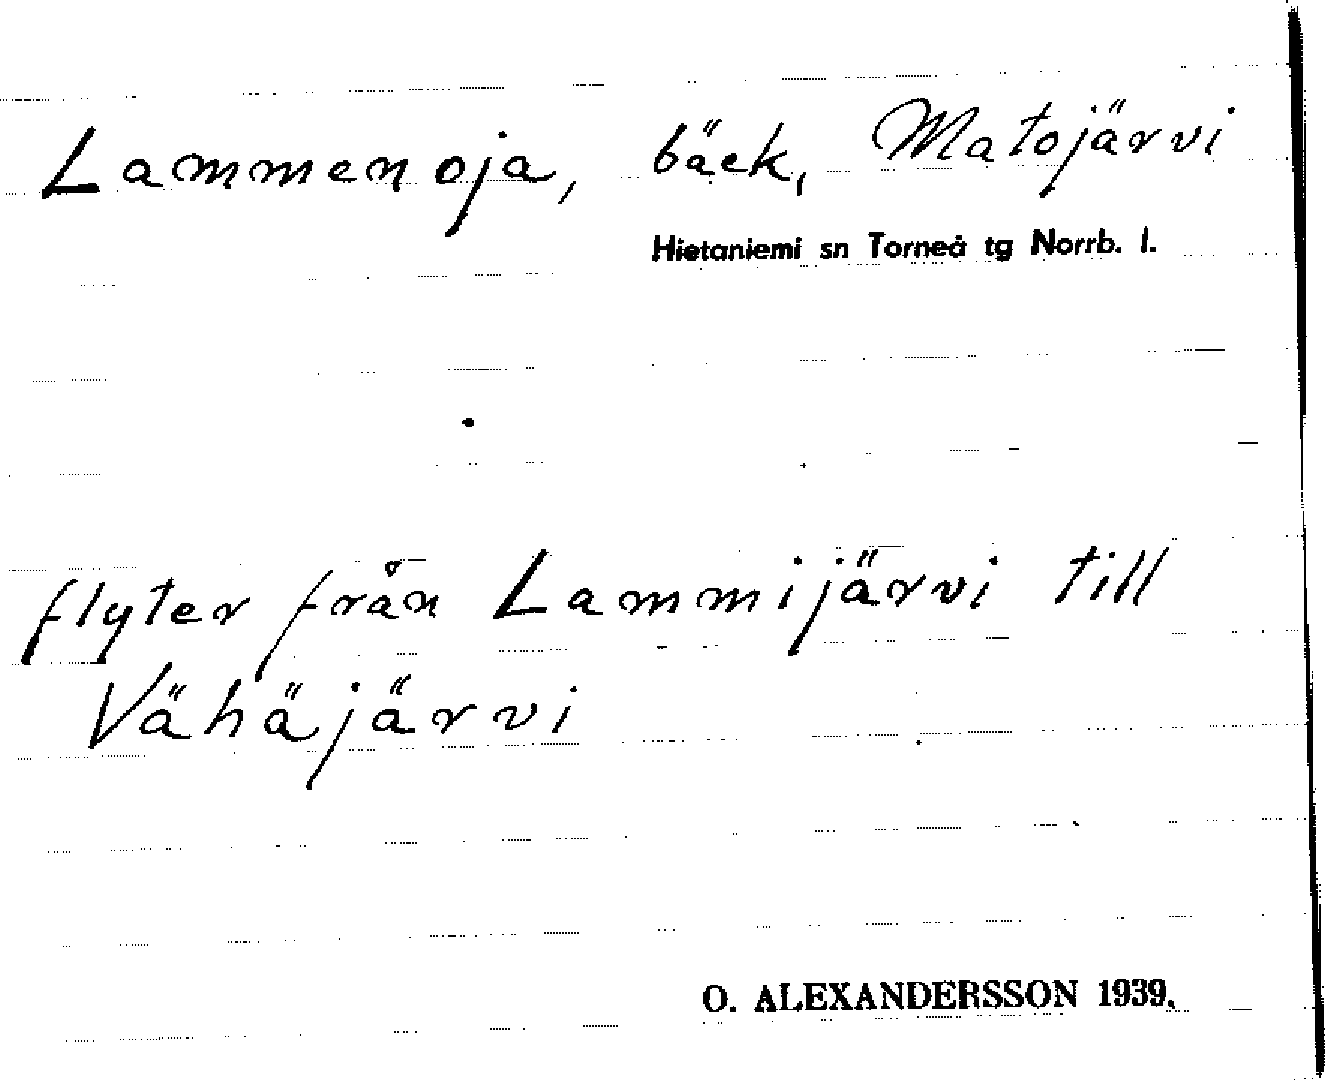 Lammenoja, bäck, Matojärvi
Hietaniemi sn Torneå tg Norrb. l.
flyter från Lammijärvi till
Vähäjärvi
O. ALEXANDERSSON 1939.